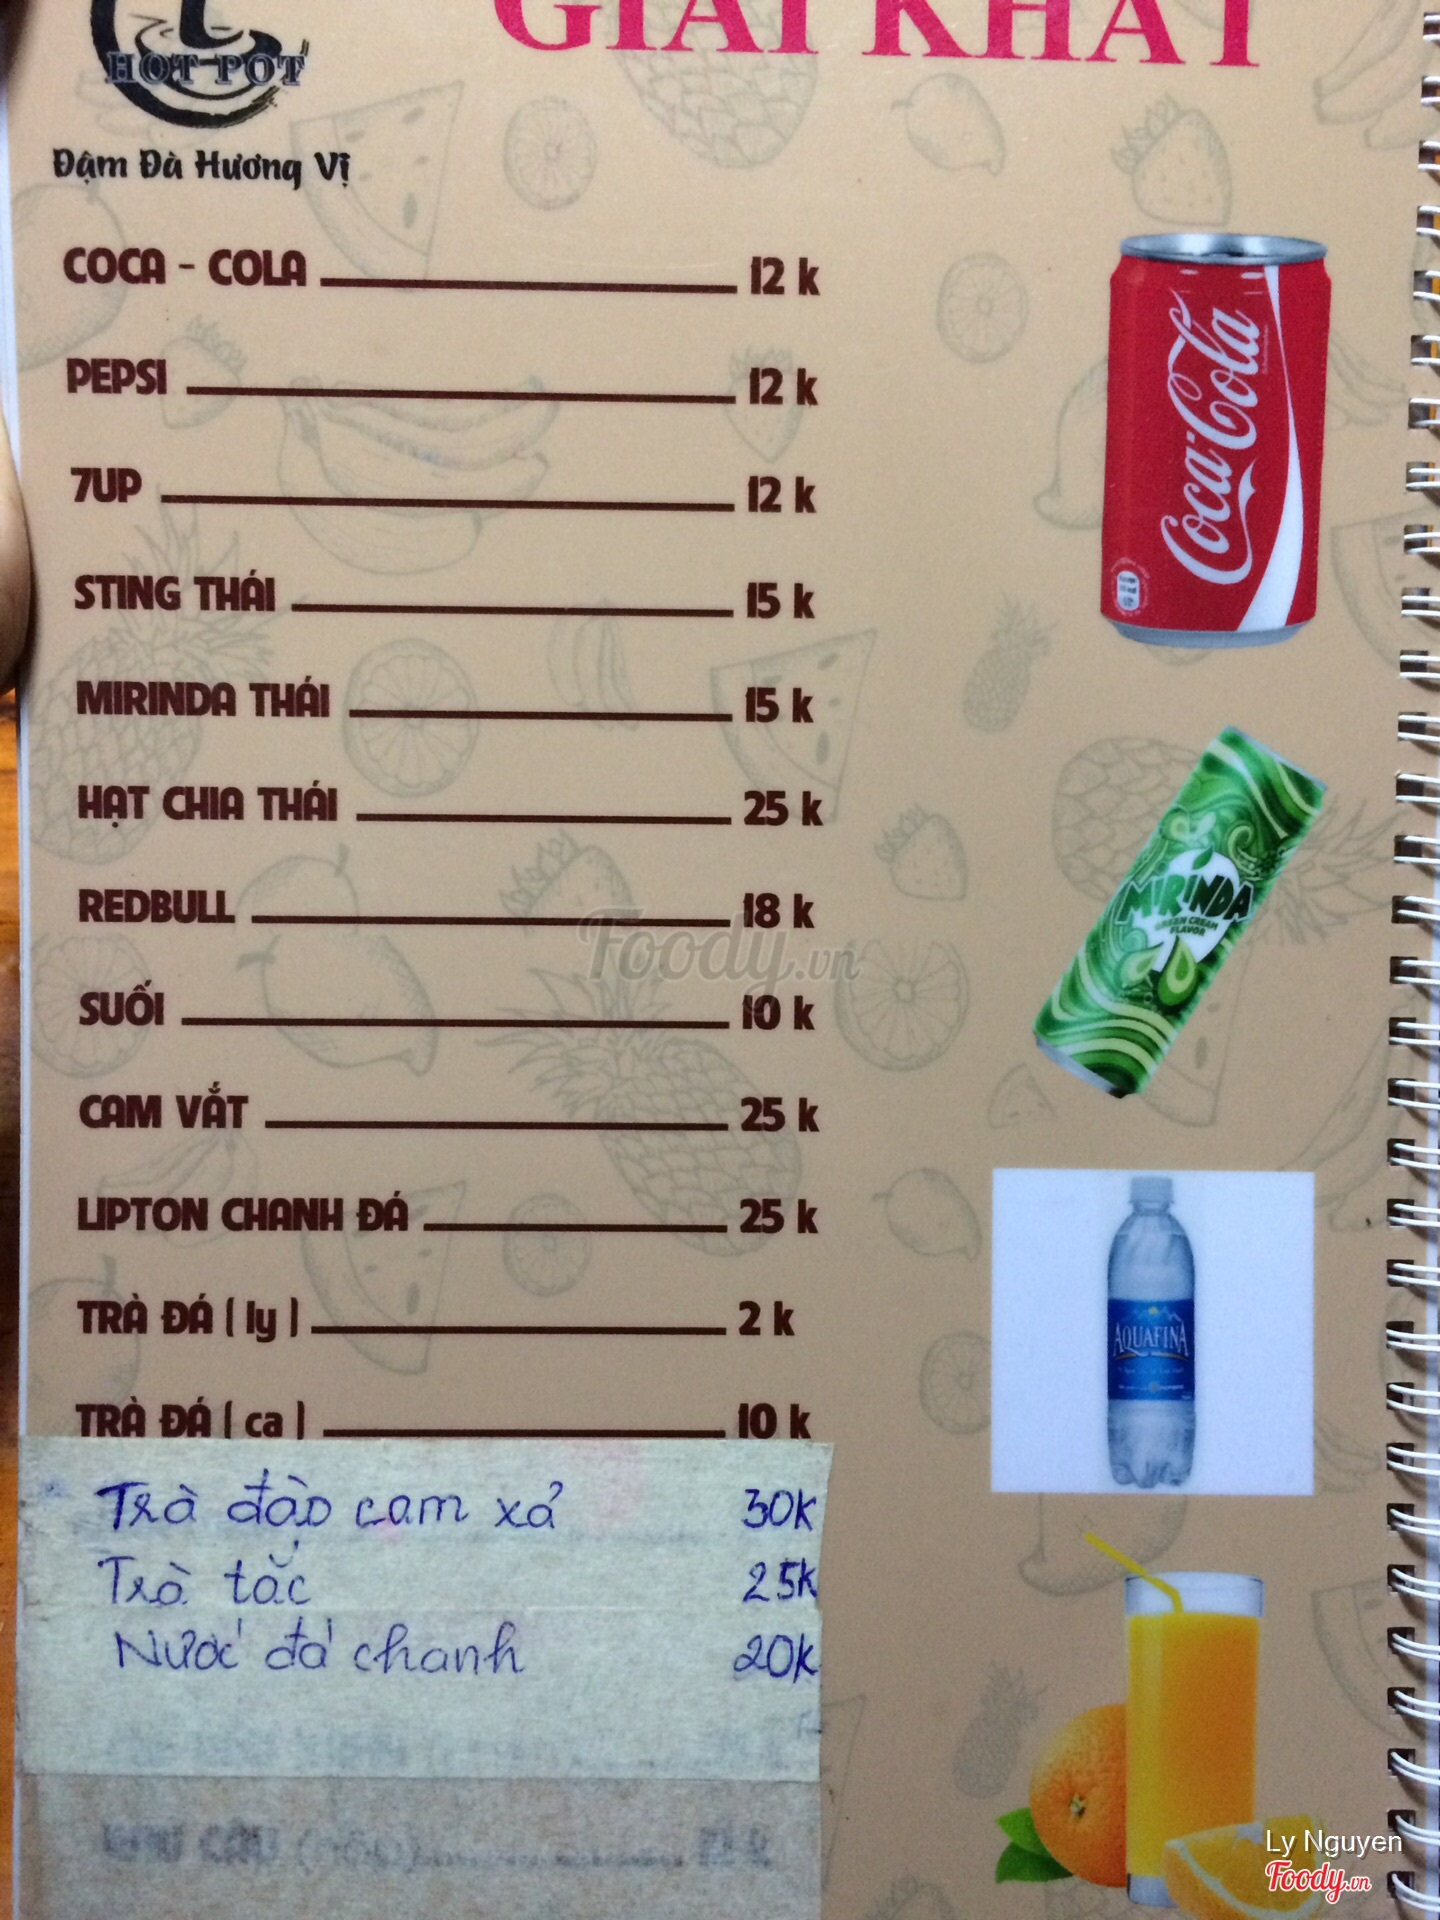 GIẢI KHÁT
HOT POT
Đậm Đà Hương Vị
COCA - COLA 12 k
PEPSI 12 k
7UP 12 k
STING THÁI 15 k
MIRINDA THÁI 15 k
HẠT CHIA THÁI 25 k
REDBULL 18 k
SUỐI 10 k
CAM VẮT 25 k
LIPTON CHANH ĐÁ 25 k
TRÀ ĐÁ ( ly ) 2 k
TRÀ ĐÁ ( ca ) 10 k
Trà đào cam xả 30K
Trà tắc 25K
Nước đá chanh 20K
Coca-Cola
MIRINDA
GREEN CREAM
FLAVOR
AQUAFINA
Foody.vn
Ly Nguyen
Foody.vn